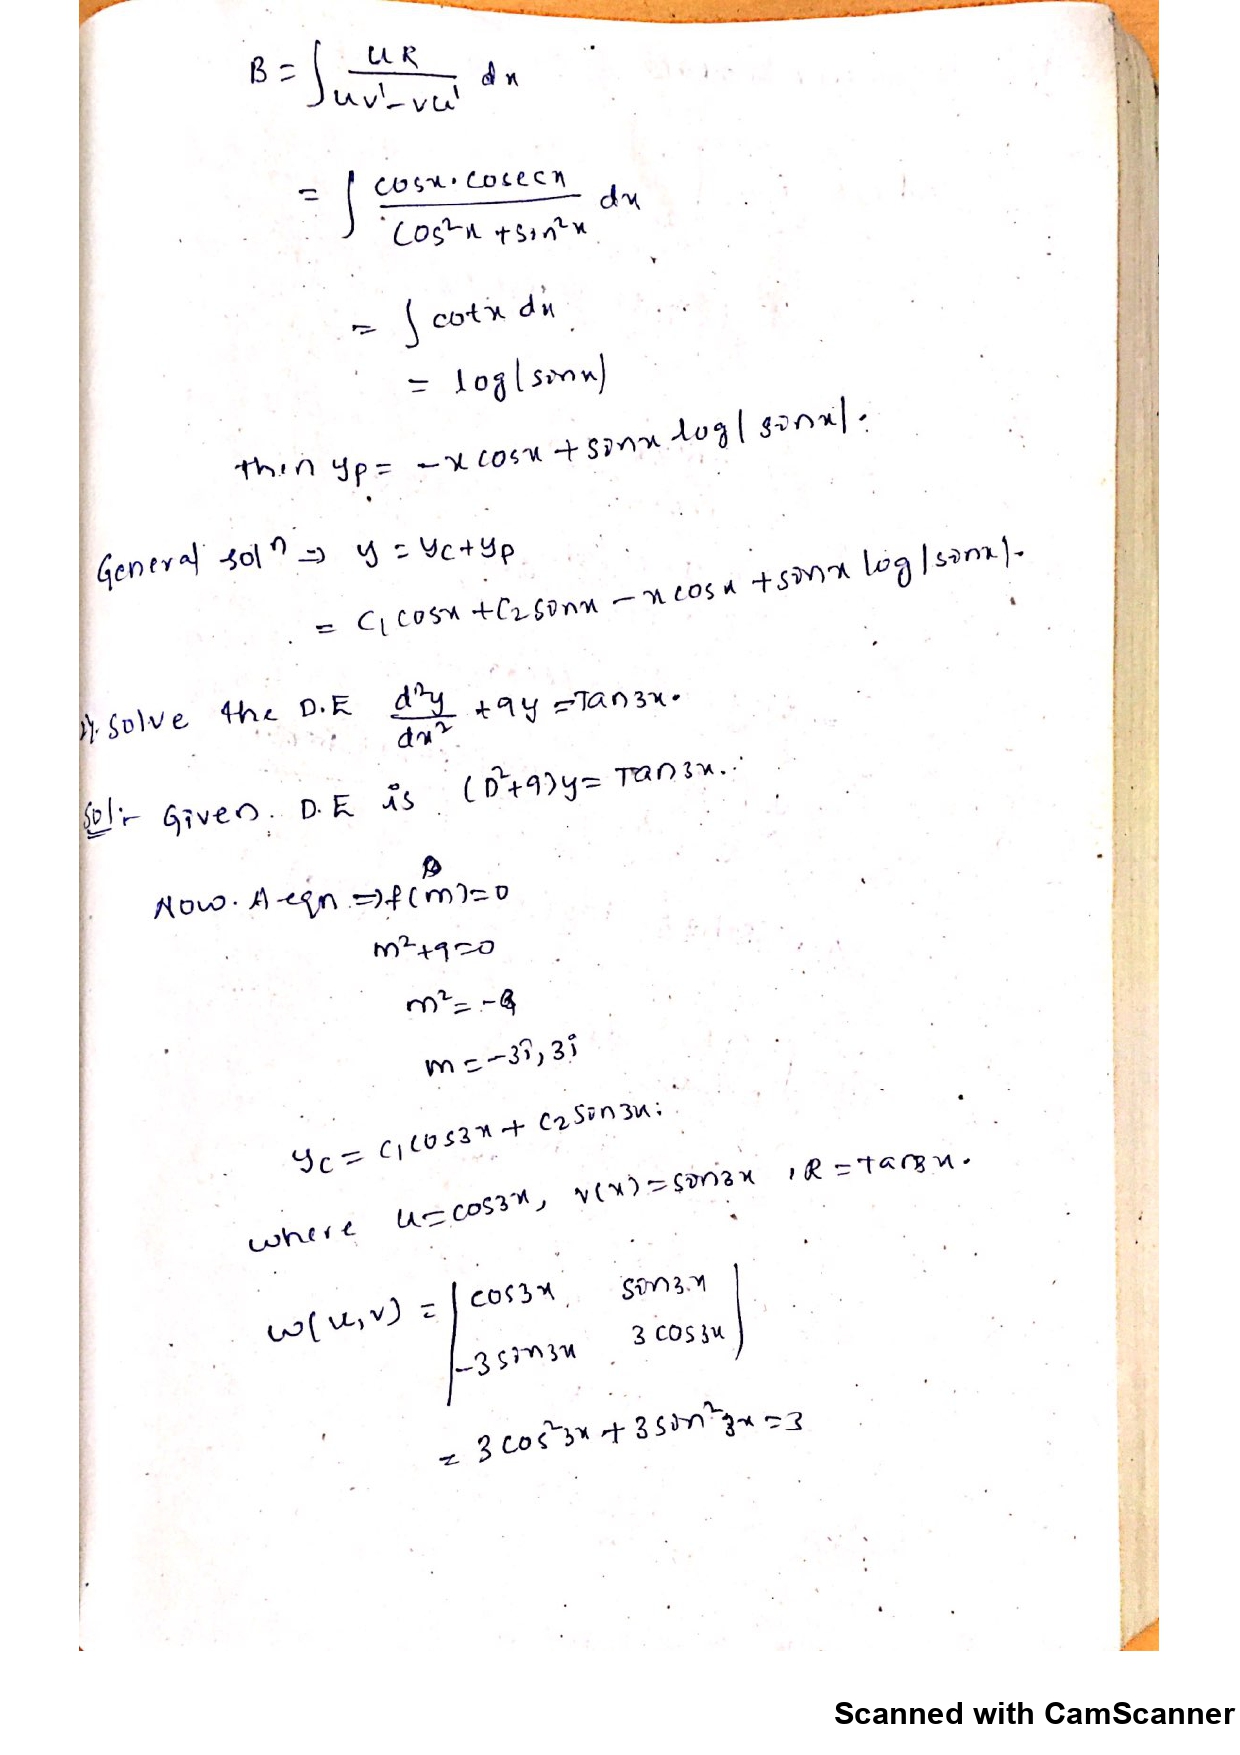 B = ∫ uR / (uv' - vu') dx
= ∫ cosx · cosecx / (cos²x + sin²x) dx
= ∫ cotx dx
= log|sinx|
then yp = -x cosx + sinx log|sinx|.
General solⁿ ⇒ y = yc + yp
= C1 cosx + C2 sinx - x cosx + sinx log|sinx|.
solve the D.E d²y/dx² + 9y = Tan3x.
Sol:- Given D.E is (D²+9)y = Tan3x.
Now. A-eqn ⇒ f(m) = 0
m²+9=0
m² = -9
m = -3i, 3i
yc = C1 cos3x + C2 sin3x.
where u = cos3x, v(x) = sin3x, R = tan3x.
w(u,v) = | cos3x sin3x
-3 sin3x 3 cos3x |
= 3 cos²3x + 3 sin²3x = 3
Scanned with CamScanner